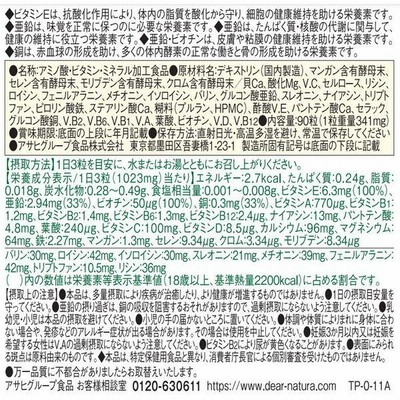 ◆ビタミンEは、抗酸化作用により、体内の脂質を酸化から守り、細胞の健康維持を助ける栄養素です。
◆亜鉛は、味覚を正常に保つのに必要な栄養素です。◆亜鉛は、たんぱく質・核酸の代謝に関与して、
健康の維持に役立つ栄養素です。◆亜鉛・ビオチンは、皮膚や粘膜の健康維持を助ける栄養素です。
◆銅は、赤血球の形成を助け、多くの体内酵素の正常な働きと骨の形成を助ける栄養素です。
●名称:アミノ酸・ビタミン・ミネラル加工食品●原材料名:デキストリン(国内製造)、マンガン含有酵母末、
セレン含有酵母末、モリブデン含有酵母末、クロム含有酵母末/貝Ca、酸化Mg、V.C、セルロース、リシン、
ロイシン、フェニルアラニン、メチオニン、イソロイシン、バリン、グルコン酸亜鉛、スレオニン、ナイアシン、トリプ
トファン、ピロリン酸鉄、ステアリン酸Ca、糊料(プルラン、HPMC)、酢酸V.E、パントテン酸Ca、セラック、
グルコン酸銅、V.B2、V.B6、V.B1、V.A、葉酸、ビオチン、V.D、V.B12●内容量:90粒(1粒重量341mg)
●賞味期限:底面の上段に年月日記載●保存方法:直射日光・高温多湿を避け、常温で保存してください。
●アサヒグループ食品株式会社 東京都墨田区吾妻橋1-23-1 製造所固有記号は底面の下段に記載
【摂取方法】1日3粒を目安に、水またはお湯とともにお召し上がりください。
【栄養成分表示/1日3粒(1023mg)当たり】エネルギー:2.7kcal、たんぱく質:0.24g、脂質:
0.018g、炭水化物:0.28～0.49g、食塩相当量:0.001～0.008g、ビタミンE:6.3mg(100%)、
亜鉛:2.94mg(33%)、ビオチン:50μg(100%)、銅:0.3mg(33%)、ビタミンA:770μg、ビタミンB1:
1.2mg、ビタミンB2:1.4mg、ビタミンB6:1.3mg、ビタミンB12:2.4μg、ナイアシン:13mg、パントテン酸:
4.8mg、葉酸:240μg、ビタミンC:100mg、ビタミンD:5.5μg、カルシウム:96mg、マグネシウ
ム:64mg、鉄:2.27mg、マンガン:1.3mg、セレン:9.34μg、クロム:3.34μg、モリブデン:8.34μg
バリン:30mg、ロイシン:42mg、イソロイシン:30mg、スレオニン:21mg、メチオニン:39mg、フェニルアラニン:
42mg、トリプトファン:10.5mg、リシン:36mg
( )内の数値は、栄養素等表示基準値(18歳以上、基準熱量2200kcal)に占める割合です。
【摂取上の注意】●本品は、多量摂取により疾病が治癒したり、より健康が増進するものではありません。●1日の摂取目安量を
守ってください。●亜鉛の摂り過ぎは、銅の吸収を阻害するおそれがありますので、過剰摂取にならないよう注意してください。●乳
幼児・小児は本品の摂取を避けてください。●小児の手の届かないところに置いてください。●体調や体質によりまれに身体に合わ
ない場合や、発疹などのアレルギー症状が出る場合があります。その場合は使用を中止してください。●妊娠3か月以内又は妊娠を
希望する女性はV.Aの過剰摂取にならないよう注意してください。●ビタミンB2により尿が黄色くなることがあります。●表面にみら
れる斑点は原料由来のものです。●本品は、特定保健用食品と異なり、消費者庁長官による個別審査を受けたものではありません。
●万一品質に不都合がありましたらお取替えいたします。
アサヒグループ食品 お客様相談室 0120-630611 https://www.dear-natura.com TP-0-11A